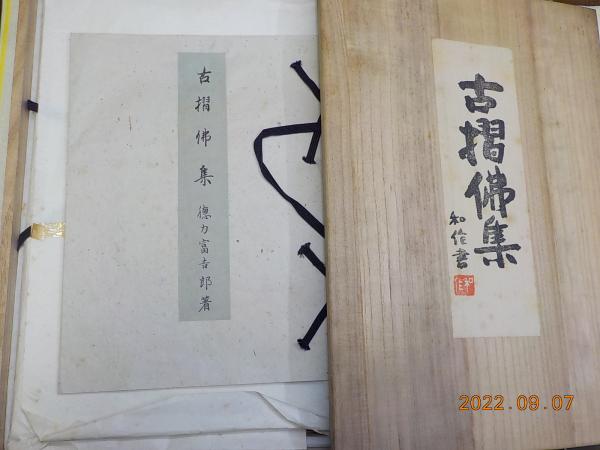 古摺佛集
徳力富吉郎著
古摺佛集
和作書
和作
2022.09.07